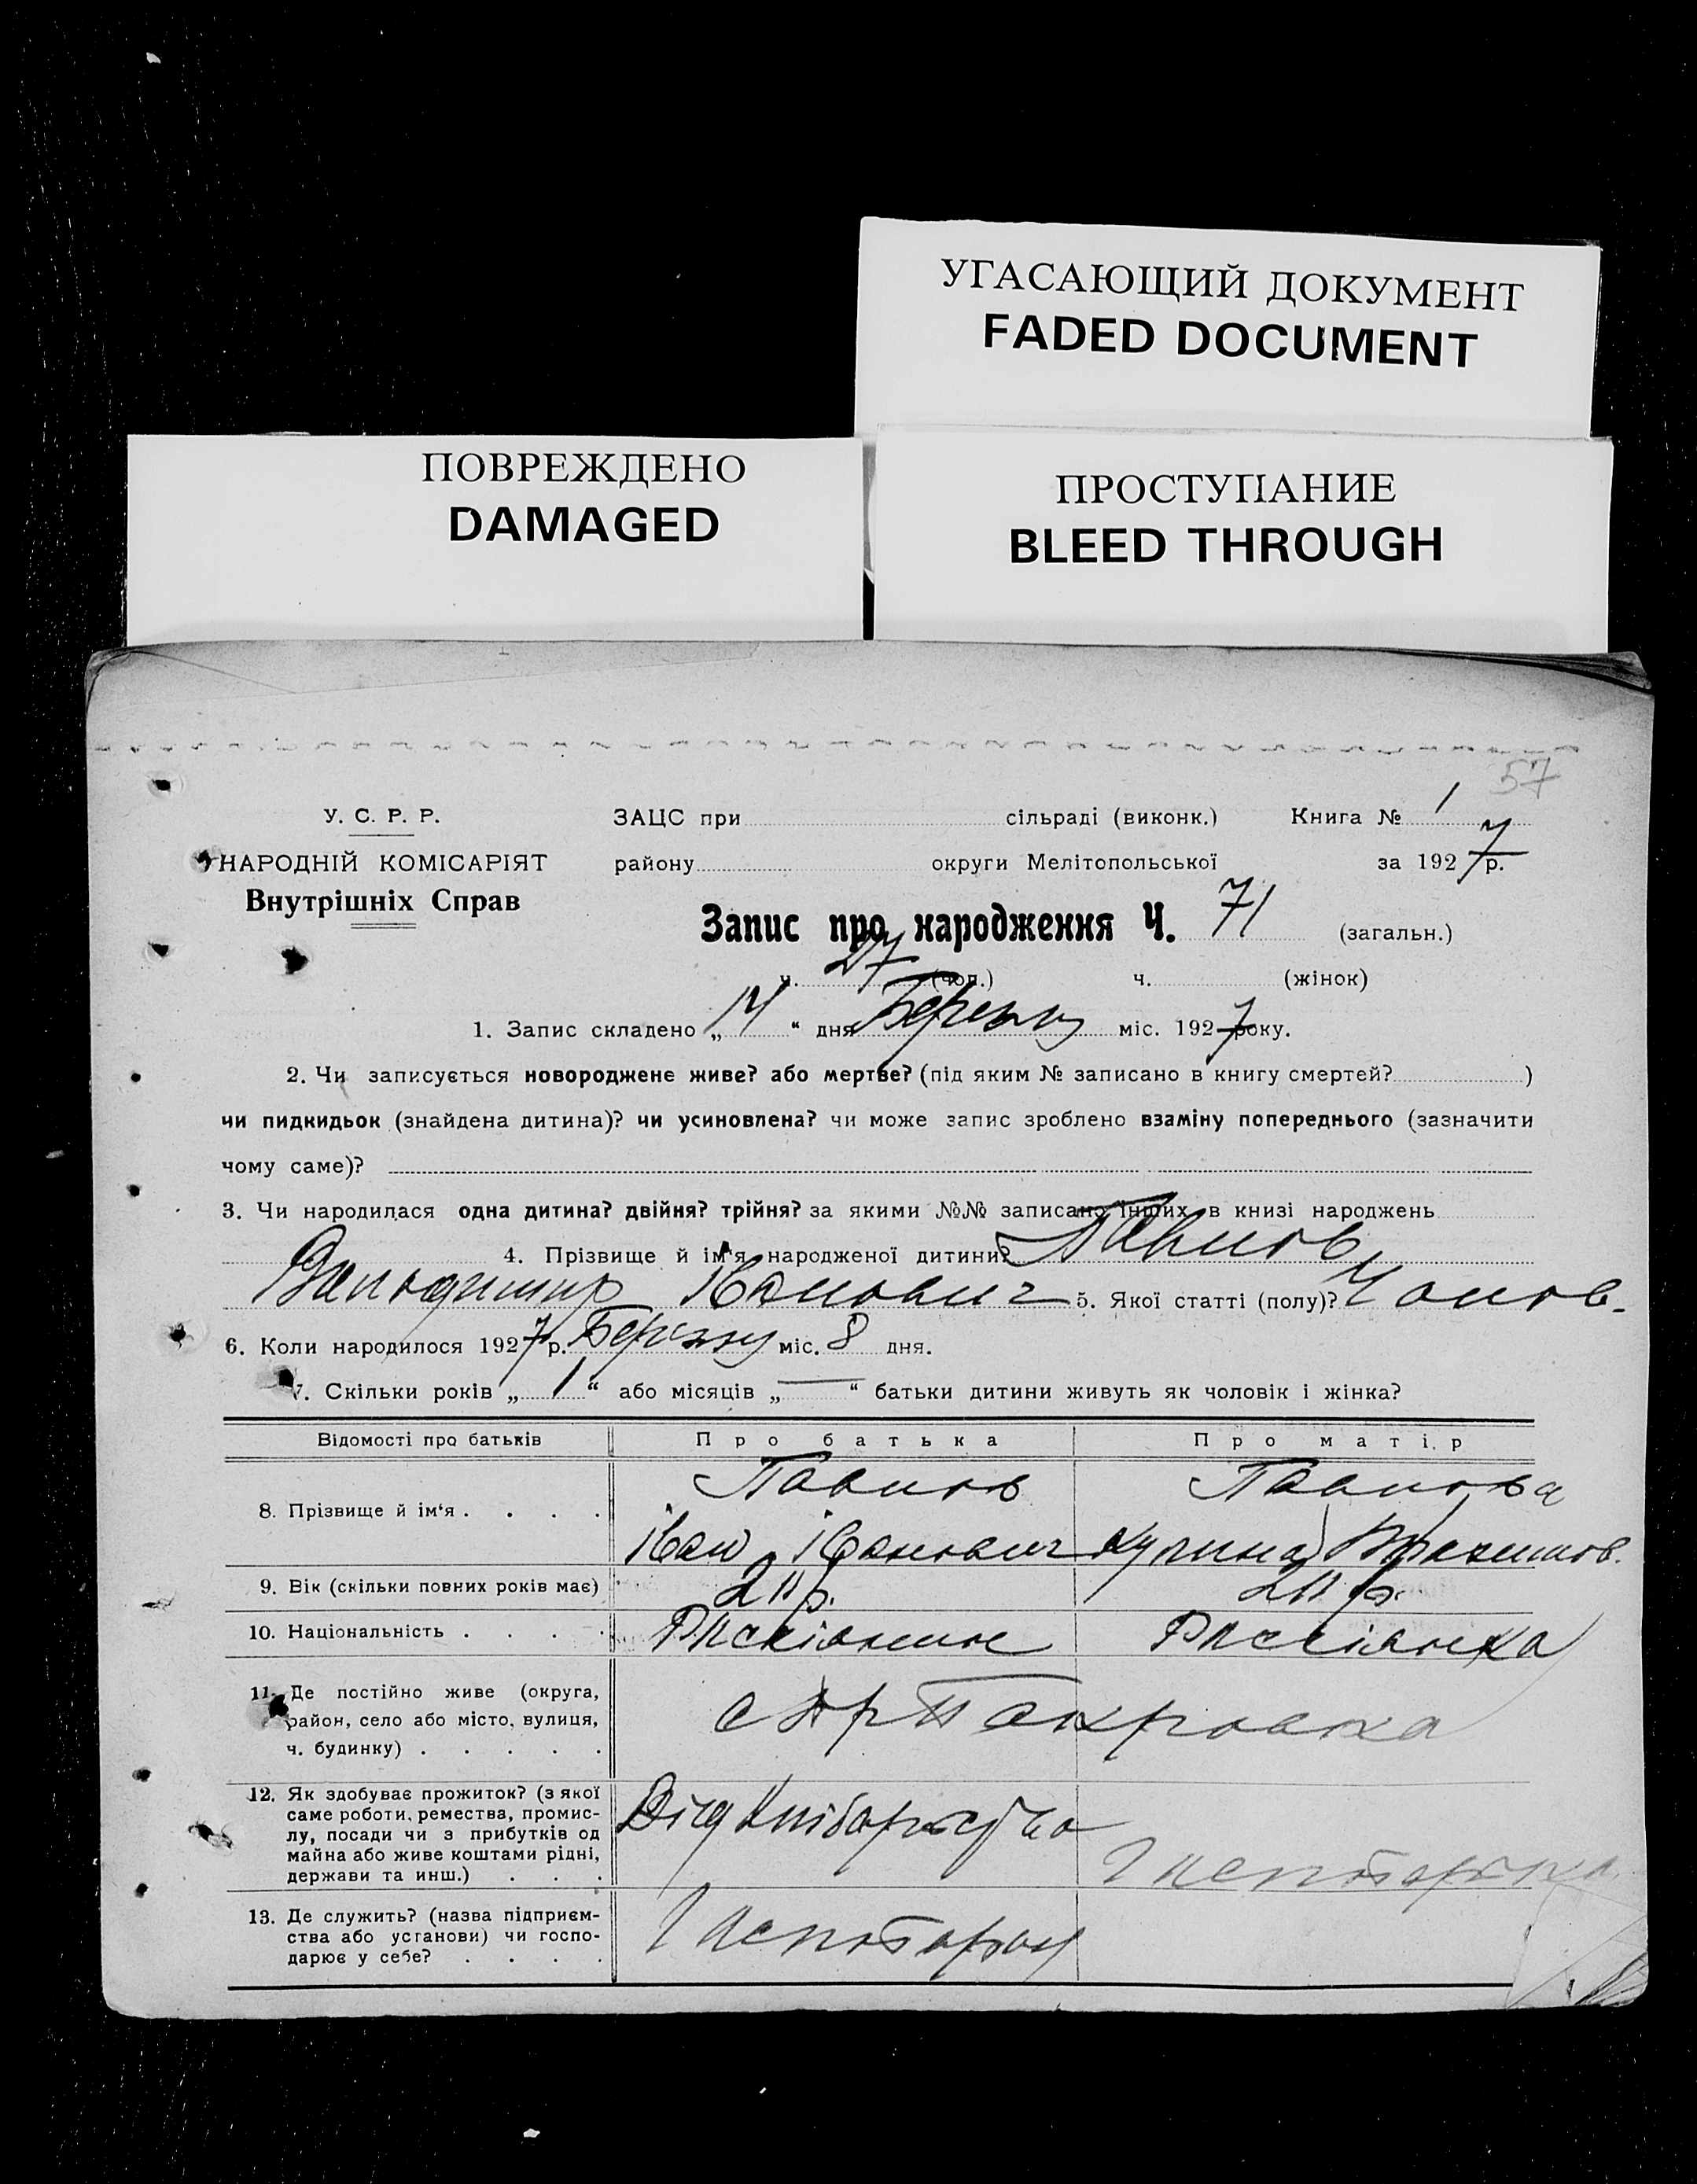 УГАСАЮЩИЙ ДОКУМЕНТ
FADED DOCUMENT
ПОВРЕЖДЕНО
DAMAGED
ПРОСТУПАНИЕ
BLEED THROUGH
57
У. С. Р. Р.
НАРОДНІЙ КОМІСАРІЯТ
Внутрішніх Справ
ЗАЦС при сільраді (виконк.) Книга № 1
району округи Мелітопольської за 1927 р.
Запис про народження Ч. 71 (загальн.)
ч. 27 (чол.) ч. (жінок)
1. Запис складено „14“ дня Березня міс. 1927 року.
2. Чи записується новороджене живе? або мертве? (під яким № записано в книгу смертей? )
чи пидкидьок (знайдена дитина)? чи усиновлена? чи може запис зроблено взаміну попереднього (зазначити
чому саме)?
3. Чи народилася одна дитина? двійня? трійня? за якими №№ записано інших в книзі народжень
4. Прізвище й ім'я народженої дитини? Павлов
Володимир Іванович 5. Якої статті (полу)? Чолов.
6. Коли народилося 1927 р. Березня міс. 8 дня.
7. Скільки років „1“ або місяців „—“ батьки дитини живуть як чоловік і жінка?
Відомості про батьків Про батька Про матір
8. Прізвище й ім'я . . . . Павлов Павлова
Іван Іванович
9. Вік (скільки повних років має)
10. Національність . . . .
11. Де постійно живе (округа,
район, село або місто, вулиця,
ч. будинку) . . . . .
Покровка
12. Як здобуває прожиток? (з якої
саме роботи, ремества, промис-
лу, посади чи з прибутків од
майна або живе коштами рідні,
держави та инш.) . . .
Від хліборобства
13. Де служить? (назва підприєм-
ства або установи) чи госпо-
дарює у себе? . . . .